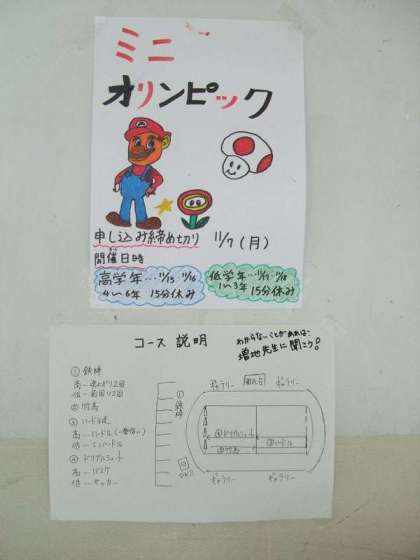 ミニ
オリンピック
申し込み締め切り 11/7(月)
開催日時
高学年…11/15. 11/16
4〜6年 15分休み
低学年…11/17. 11/18
1〜3年 15分休み
コース 説明
わからないことがあれば、
増地先生に聞こう!
① 鉄棒
高…逆上がり2回
低…前回り2回
② 竹馬
③ ハードル走
高…ハードル(一番低い)
低…ミニハードル
④ ドリブルシュート
高…バスケ
低…サッカー
① 鉄棒
ギャラリー
ギャラリー
④ドリブルシュート
③ハードル
②竹馬
ギャラリー
ギャラリー